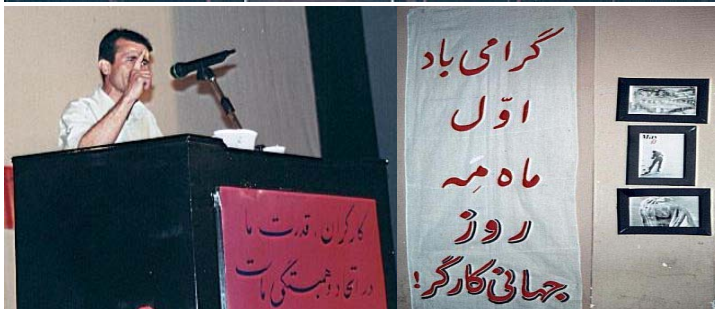 کارگران، قدرت ما
در اتحاد و همبستگی ماست
گرامی باد
اوّل
ماه مِه
روز
جهانی کارگر!
May